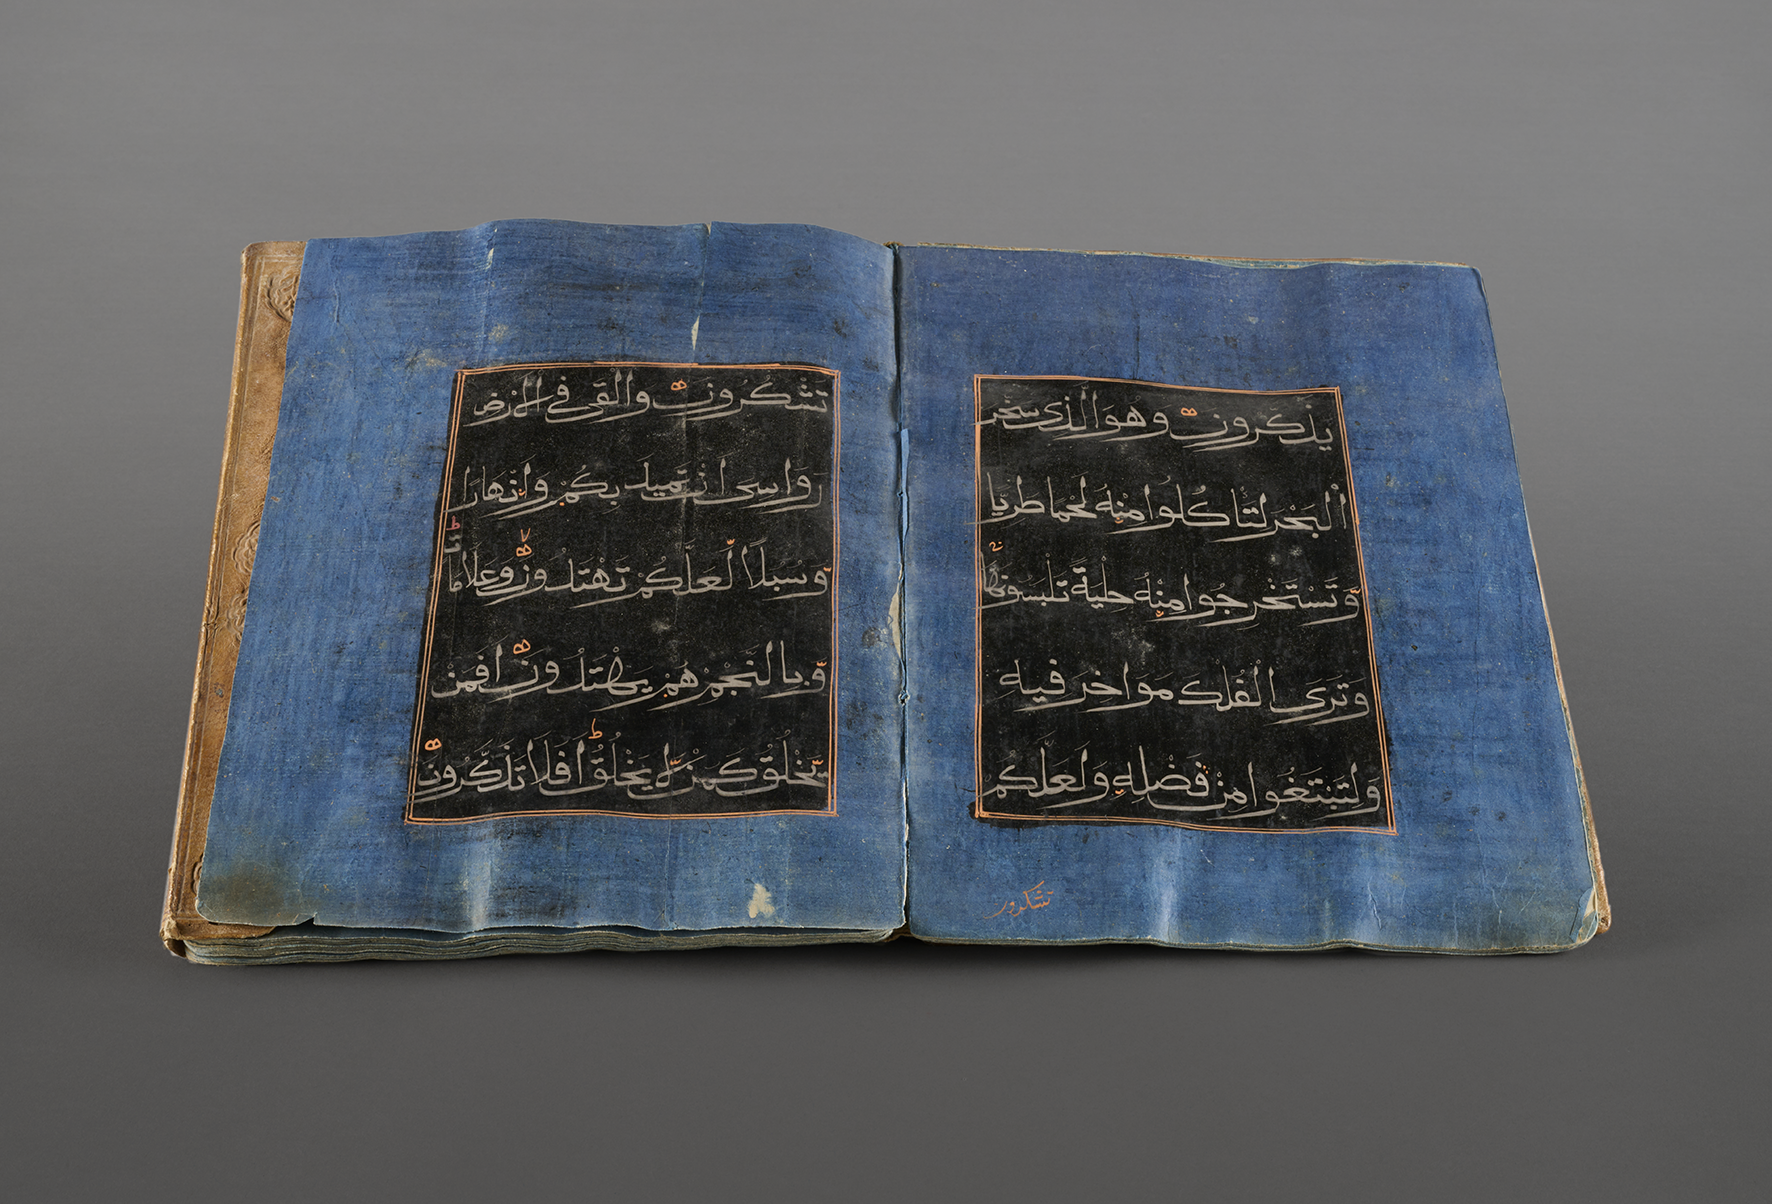 يَذَّكَّرُونَ وَهُوَ الَّذِى سَخَّرَ
الْبَحْرَ لِتَأْكُلُوا مِنْهُ لَحْمًا طَرِيًّا
وَّتَسْتَخْرِجُوا مِنْهُ حِلْيَةً تَلْبَسُونَهَا
وَتَرَى الْفُلْكَ مَوَاخِرَ فِيهِ
وَلِتَبْتَغُوا مِنْ فَضْلِهِ وَلَعَلَّكُمْ
تشكرون
تَشْكُرُونَ وَاَلْقَى فِى الْاَرْضِ
رَوَاسِىَ اَنْ تَمِيدَ بِكُمْ وَاَنْهَارًا
وَّسُبُلًا لَّعَلَّكُمْ تَهْتَدُونَ وَعَلَامَاتٍ
وَّبِالنَّجْمِ هُمْ يَهْتَدُونَ اَفَمَنْ
يَّخْلُقُ كَمَنْ لَّا يَخْلُقُ اَفَلَا تَذَكَّرُونَ